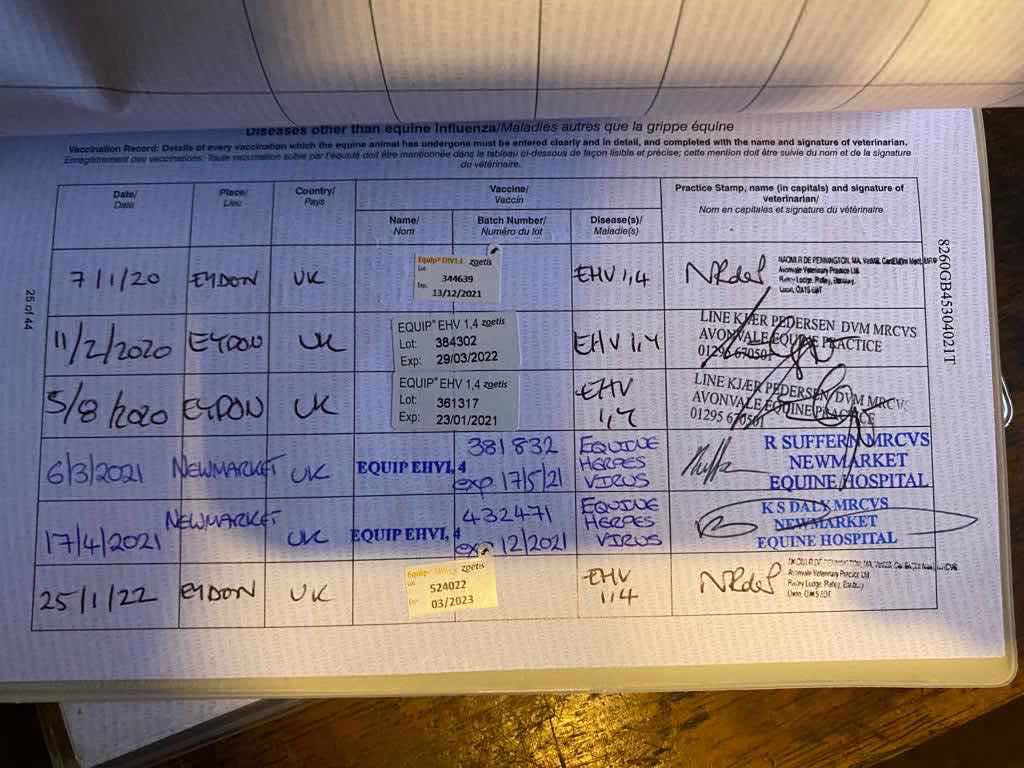 Diseases other than equine Influenza/Maladies autres que la grippe équine
Vaccination Record: Details of every vaccination which the equine animal has undergone must be entered clearly and in detail, and completed with the name and signature of veterinarian.
Enregistrement des vaccinations: Toute vaccination subie par l'équidé doit être mentionnée dans le tableau ci-dessous de façon lisible et précise; cette mention doit être suivie du nom et de la signature
du vétérinaire.
Date/
Date
Place/
Lieu
Country/
Pays
Vaccine/
Vaccin
Name/
Nom
Batch Number/
Numéro du lot
Disease(s)/
Maladie(s)
Practice Stamp, name (in capitals) and signature of
veterinarian/
Nom en capitales et signature du vétérinaire
7/1/20
EYDON
UK
Equip® EHV1,4 zoetis
Lot
344639
Exp:
13/12/2021
EHV 1,4
NAOMI R DE PENNINGTON, MA, VetMB,
Avonvale Veterinary Practice Ltd
11/2/2020
EYDON
UK
EQUIP® EHV 1,4 zoetis
Lot: 384302
Exp: 29/03/2022
EHV 1,4
LINE KJÆR PEDERSEN DVM MRCVS
AVONVALE EQUINE PRACTICE
5/8/2020
EYDON
UK
EQUIP® EHV 1,4 zoetis
Lot: 361317
Exp: 23/01/2021
EHV
1,4
LINE KJÆR PEDERSEN DVM MRCVS
AVONVALE EQUINE PRACTICE
01295 670501
6/3/2021
NEWMARKET
UK
EQUIP EHV1, 4
381832
exp 17/5/21
EQUINE
HERPES
VIRUS
R SUFFERN MRCVS
NEWMARKET
EQUINE HOSPITAL
17/4/2021
NEWMARKET
UK
EQUIP EHV1, 4
432471
exp 12/2021
EQUINE
HERPES
VIRUS
K S DALY MRCVS
NEWMARKET
EQUINE HOSPITAL
25/1/22
EYDON
UK
Equip® zoetis
Lot
524022
03/2023
EHV
1,4
Avonvale Veterinary Practice Ltd
25 of 44
8260GB45304021T